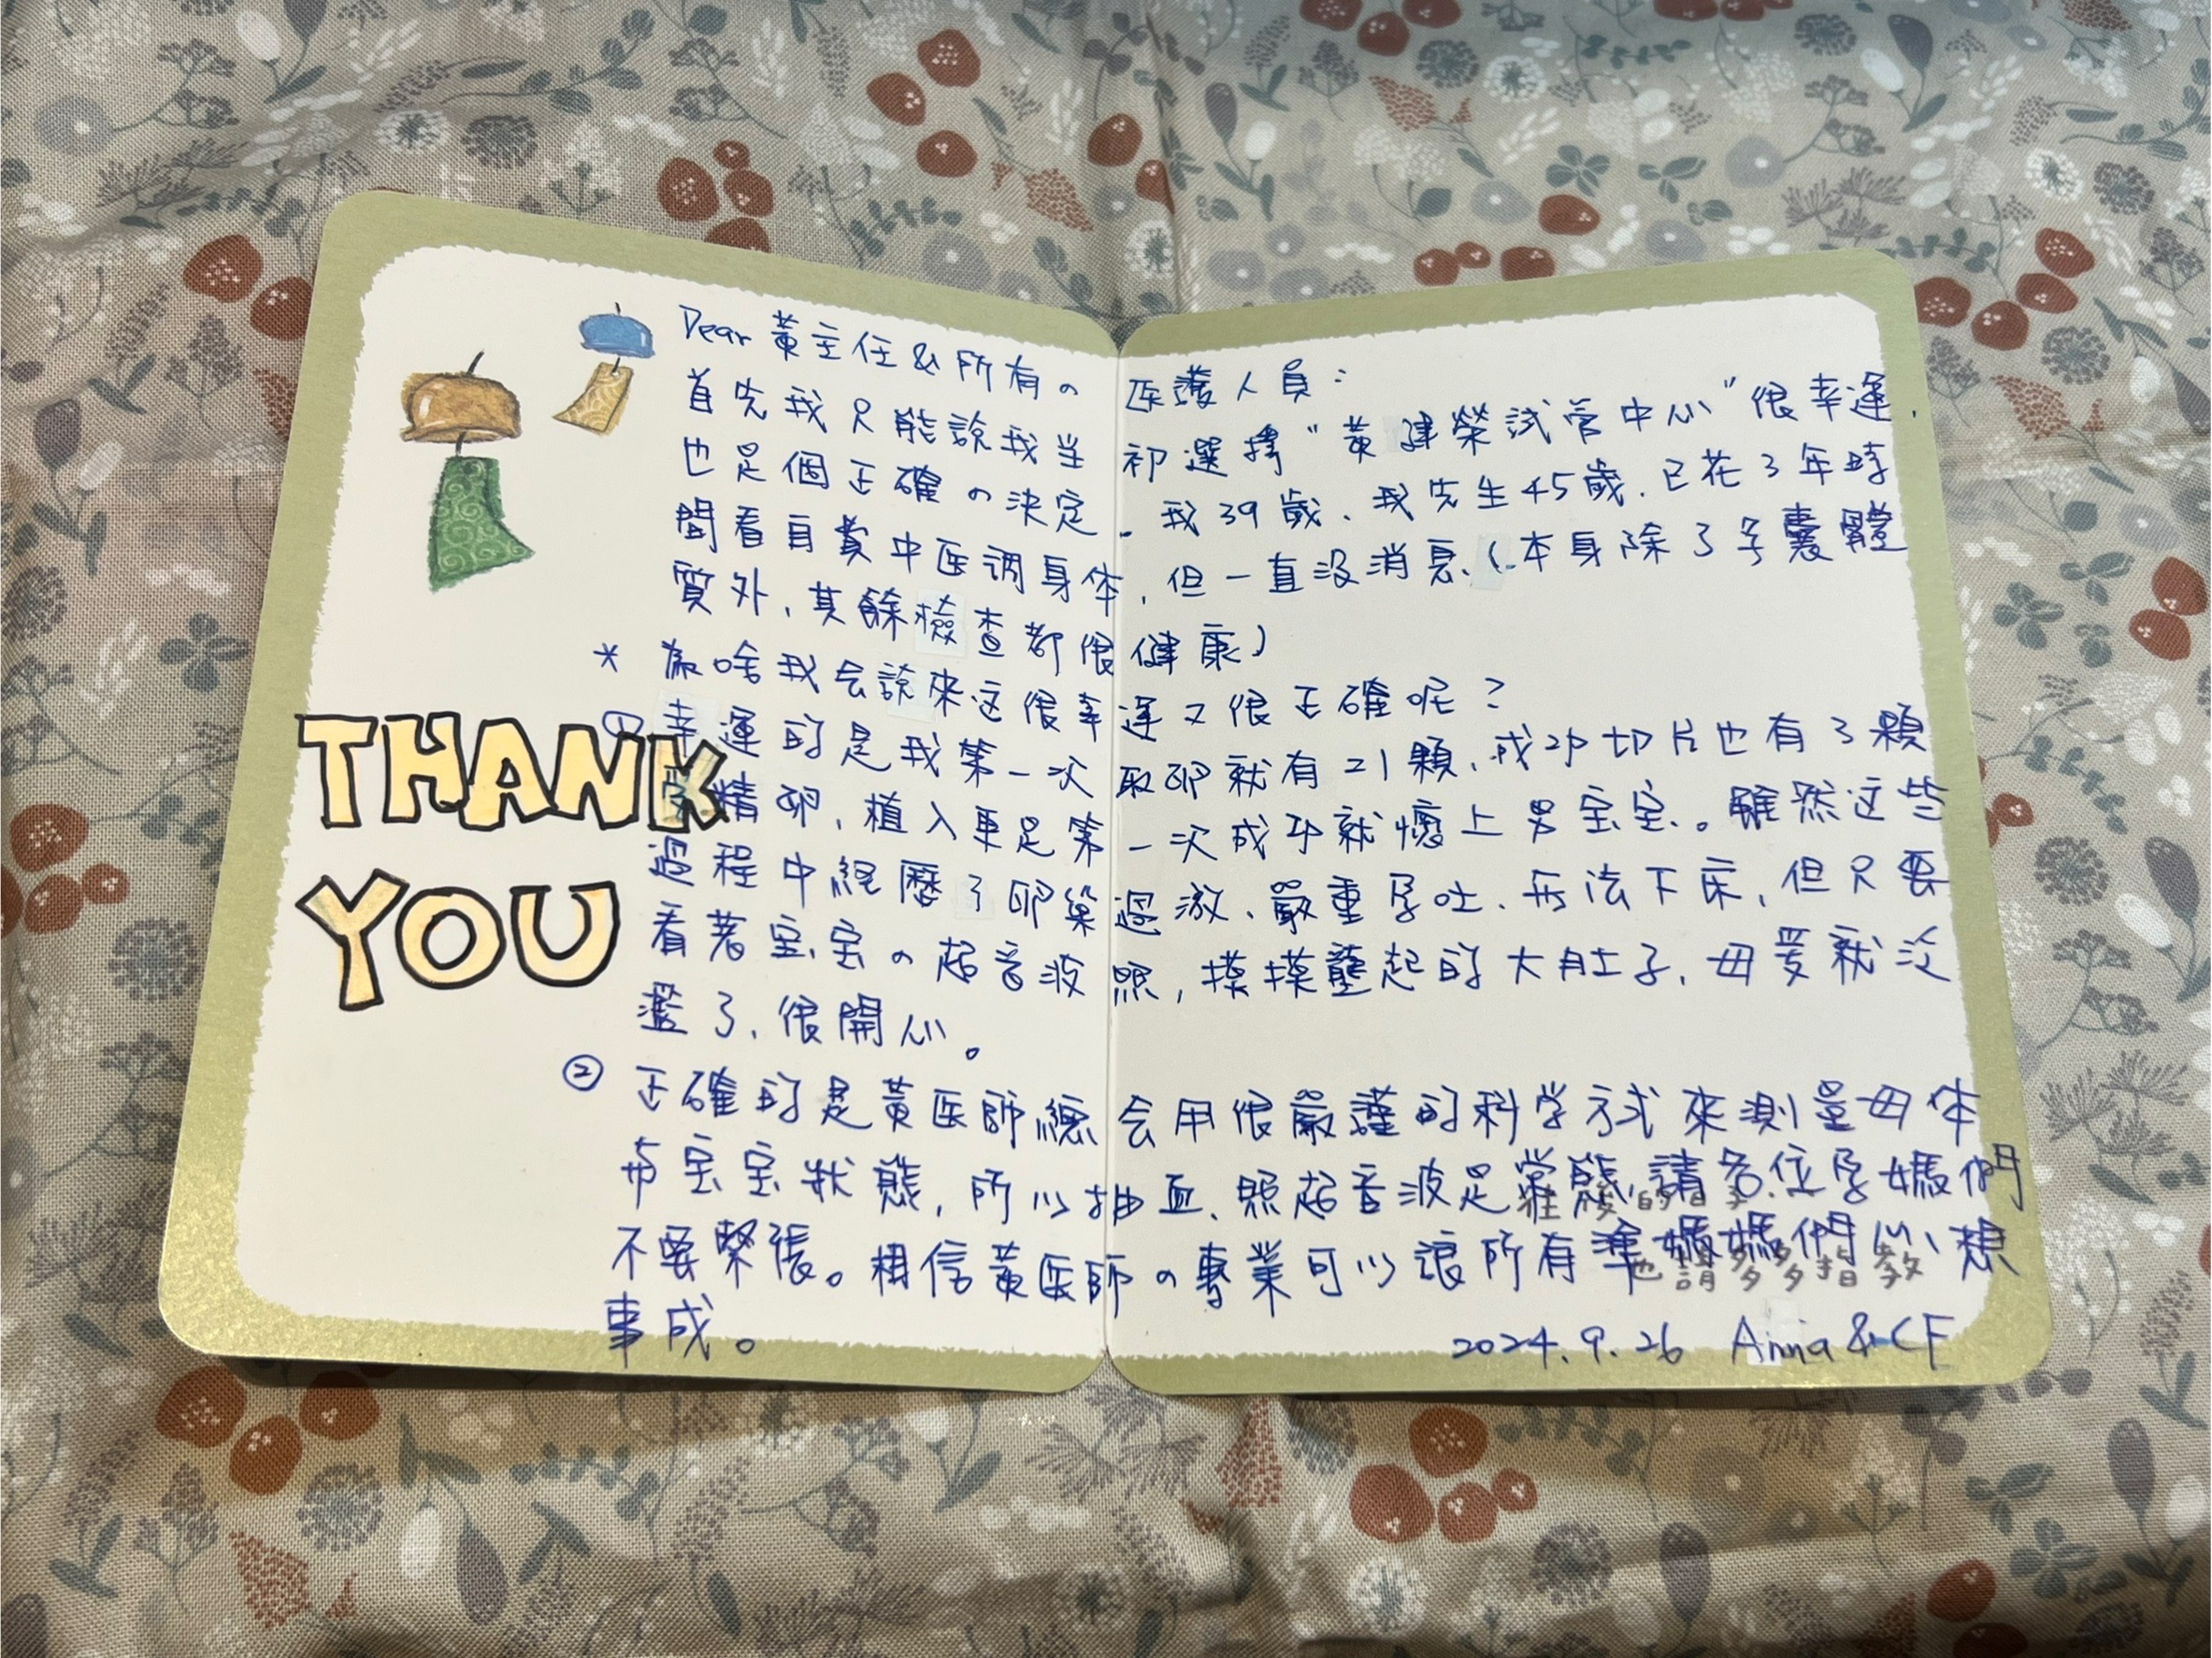 Dear 黃主任 & 所有の医護人員：
首先我只能說我当初選擇"黃建榮試管中心"很幸運，
也是個正確の決定。我39歲、我先生45歲，已花了3年時
間看自費中医调身体，但一直没消息（本身除了多囊體
質外，其餘檢查都很健康）
* 為啥我会說來这很幸運又很正確呢？
① 幸運的是我第一次取卵就有21顆，成功切片也有3顆
受精卵，植入更是第一次成功就懷上男宝宝。雖然这些
過程中経歷了卵巢過激、嚴重孕吐、无法下床，但只要
看著宝宝の超音波照，摸摸蘢起的大肚子，母愛就泛
濫了，很開心。
② 正確的是黃医師總会用很嚴謹的科学方式來測量母体
与宝宝狀態，所以抽血、照超音波是常態，請各位孕媽們
不要緊張。相信黃医師の專業可以讓所有準媽媽們心想
事成。
THANK
YOU
的日子
也請多多指教
2024.9.26 Anna & CF